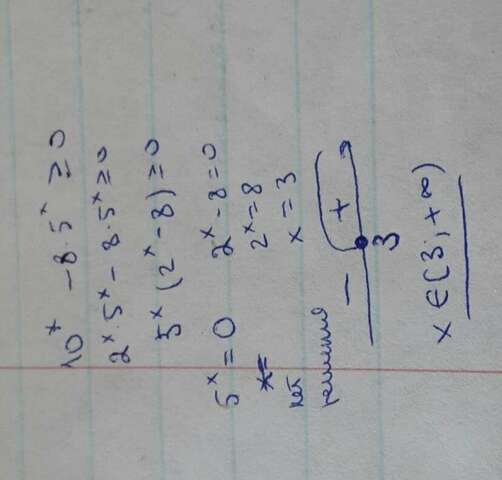 10ˣ - 8·5ˣ ≥ 0
2ˣ·5ˣ - 8·5ˣ ≥ 0
5ˣ (2ˣ - 8) ≥ 0
5ˣ = 0 2ˣ - 8 = 0
2ˣ = 8
нет x = 3
решения
- +
3
x ∈ [3; +∞)